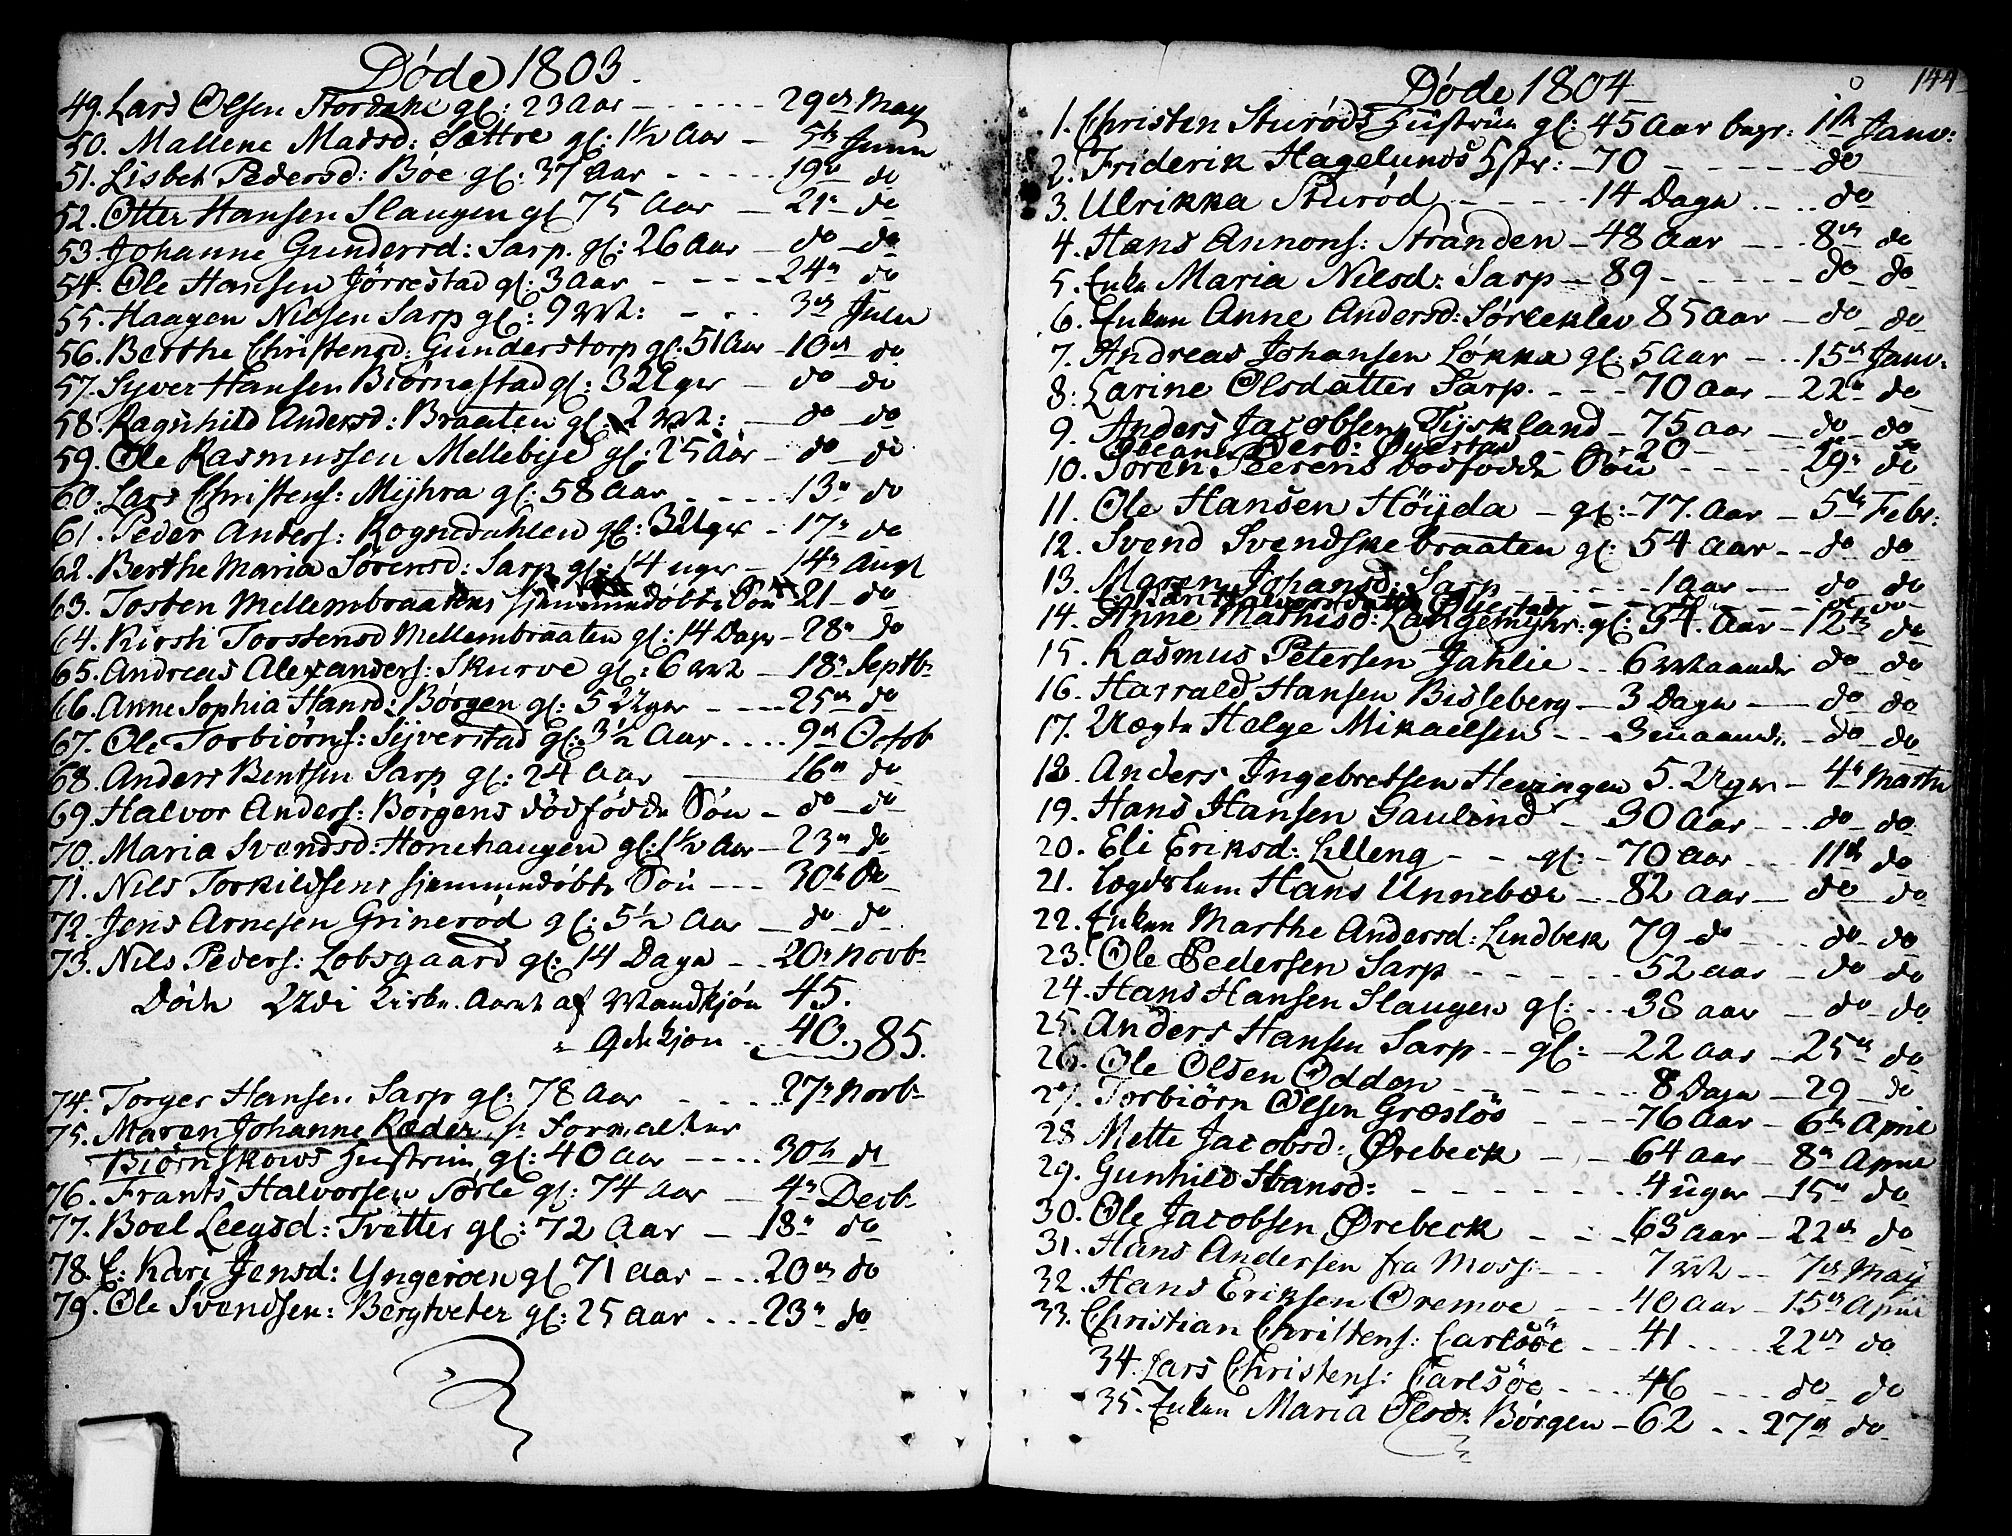 Døde 1803.
49. Lars Olsen gl: 23 Aar - - - - - 29de May
50. Mallene Madsd: Sættre gl: 1½ Aar - 5te Junii
51. Lisbet Pedersd: Bøe gl: 37 Aar - - - - - 19de do
52. Otter Hansen Slaugen gl 75 Aar — 21n do
53. Johanne Gundersd: Sarp. gl: 26 Aar — do — do
54. Ole Hansen Jørrestad gl: 3 Aar - - - - 24n do
55. Haagen Nielsen Sarp gl: 9 Mh: - - - 3de Julii
56. Berthe Christensd: Gunderstorp gl: 51 Aar - 10de do
57. Syver Hansen Biørnestad gl: 3 Uger — do — do
58. Ragnhild Andersd: Braaten gl: 2 Mh: — do — do
59. Ole Rasmussen Mellebye gl: 25 Aar — do — do
60. Lars Christens: Myhra gl: 58 Aar - - - - 13n do
61. Peder Anders: Rognedahlen gl: 3 Uger - 17n do
62. Berthe Maria Sørensd: Sarp gl: 14 uger — 14n Augt
63. Tosten Mellembraatens hjemmedøbte Søn 21 — do
64. Kirsti Torstensd Mellembraaten gl: 14 Dage - 28n do
65. Andreas Alexanders: Skurve gl: 6 Mh — 18n Septb
66. Anne Sophia Hansd: Børgen gl: 5 Uger - - - 25de do
67. Ole Torbiørns: Syverstad gl: 3½ Aar - - - - 9de Octob
68. Anders Bentsen Sarp gl: 24 Aar — 16n do
69. Halvor Anders: Børgens dødfødde Søn - do — do
70. Maria Svendsd: Honehaugen gl: 1½ Aar — 23n do
71. Nils Torkildsens hjemmedøbte Søn - - - 30te do
72. Jens Arnesen Grinerød gl: 5½ Aar — do — do
73. Nils Peders: Lobsgaard gl: 14 Dage - - 20n Novb
Døde Udi Kirke-Aaret af Mandkjøn 45.
" Qdekjøn - 40. 85.
74. Torger Hansen Sarp gl: 78 Aar - - - - 27n Novb
75. Maren Johanne Ræder, Sr Forvalter
Biørnskows Hustrue, gl: 40 Aar - - - - 30te do
76. Frants Halvorsen Sørle gl: 74 Aar — 4n Decb
77. Boel Leegsd: Tvetter gl: 72 Aar — 18n do
78. E: Kari Jensd: Yngeroen gl 71 Aar - - - 20de do
79. Ole Svendsen: Bergtveter gl: 25 Aar - - - 23n do
144
Døde 1804
1. Christen Sturøds Hustrue gl: 45 Aar begr: 1te Janv:
2. Friderik Hagelunds Hstr: - 70 - - - - - do
3. Ulrikka Sturød - - - - - 14 Dage - - - do
4. Hans Annons: Stranden - 48 Aar - - - 8de do
5. Enke Maria Nilsd: Sarp - 89 - - - - - do do
6. Enken Anne Andersd: Sørleklev 85 Aar — do do
7. Andreas Johansen Løkka gl: 5 Aar - - - 15de Janv:
8. Karine Olsdatter Sarp. - - - 70 Aar - 22n do
9. Anders Jacobsen Tyskland - 75 Aar — do — do
Oleana Pedd: Øvestad - - 20 - - - - do do
10. Søren Peerens dødfødde Søn - - - - - 29n do
11. Ole Hansen Höyda - gl: - 77. Aar - 5te Febr:
12. Svend Svendskebraaten gl: 54 Aar - - do do
13. Maren Johansd: Sarp - - - - - - 1 Aar — do do
Kari Halvorsdatter Øvestad - - - - - do
14. Anne Mathisd: Langemyhr: gl: 94. Aar - 12te do
15. Rasmus Petersen Jahlie - - 6 Maaneder do do
16. Harrald Hansen Bisleberg - 3 Dage — do do
17. Uægte Helge Mikaelsen - - 3 maaneder - do do
18. Anders Ingebretsen Hevingen 5. Uger - 4n Martii
19. Hans Hansen Gaulind - 30 Aar - - - do do
20. Eli Eriksd: Lilleng - - gl: - 70 Aar - - - 11te do
21. Lægdslem Hans Unneboe - - 82 Aar — do do
22. Enken Marthe Andersd: Lindbek 79 do - - - do do
23. Ole Pedersen Sarp - - - - - 52 Aar — do do
24. Hans Hansen Slaugen gl: - - 38 Aar — do do
25. Anders Hansen Sarp - - gl: - 22 Aar - 25de do
26. Ole Olsen Odden - - - - - 8 Dage - 29 - do
27. Torbiørn Olsen Græsløs - - - 76 Aar - 6te April
28 Mette Jacobsd: Ørebeck - - - 64 Aar - 8n April
29. Gunhild Hansd: - - - - - - - 4 uger - 15n do
30. Ole Jacobsen Ørebeck - - - 63 Aar - 22de do
31. Hans Andersen fra Moss: - - - 7 Mh - - 7de May
32. Hans Eriksen Oremoe - - - 40 Aar - 15de April
33. Christian Christens: Carlsöe - - - 41 - - - - 22de do
34. Lars Christens: Carlsöe - - - - 46 - - - do do
35. Enken Maria Olsd: Børgen - 62 - - 27de do